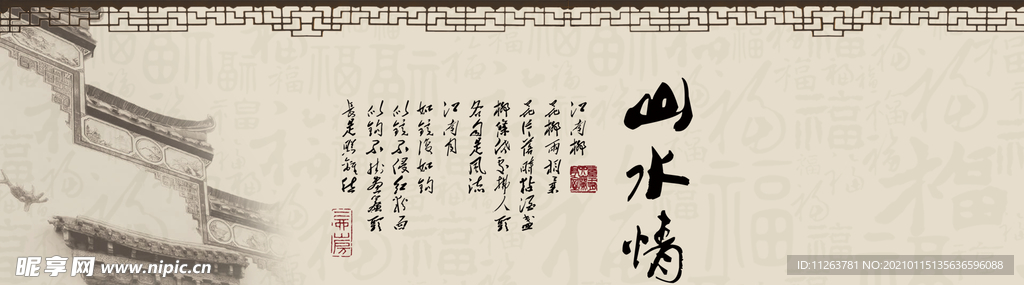 山水情
江南柳
花柳两相柔
花片落时黏酒盏
柳条低处拂人头
各自是风流
江南月
如镜复如钩
似镜不侵红粉面
似钩不挂画帘头
长是照离愁
昵享网 www.nipic.cn
ID:11263781 NO:20210115135636596088